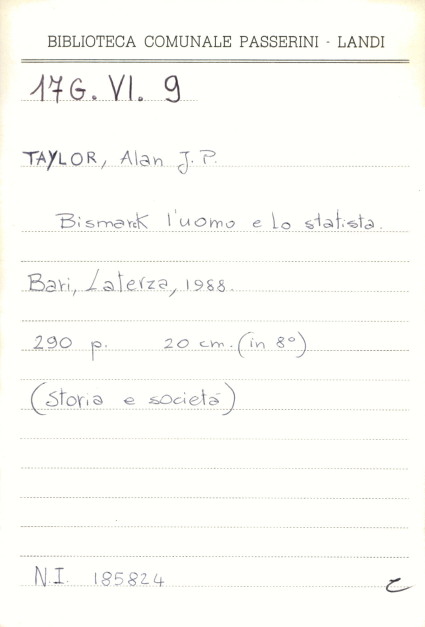 BIBLIOTECA COMUNALE PASSERINI - LANDI
17G. VI. 9
TAYLOR, Alan J. P.
Bismarck l'uomo e lo statista.
Bari, Laterza, 1988.
290 p. 20 cm. (in 8°)
(Storia e società)
N.I. 185824
c